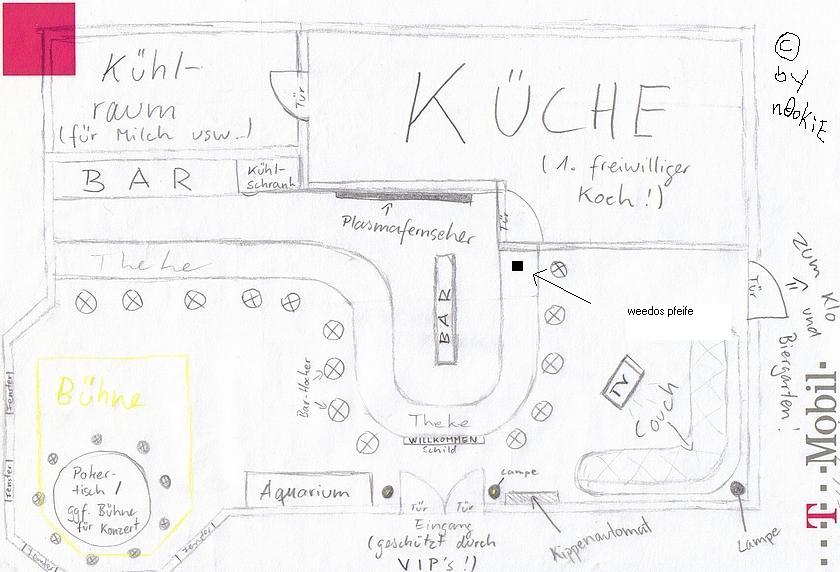 Kühl-
raum
(für Milch usw..)
Tür
KÜCHE
(1. freiwilliger
Koch!)
© by nOokiE
BAR
Kühl-
schrank
Plasmafernseher
Tür
Theke
BAR
weedos pfeife
Tür
zum Klo
und
Biergarten!
Bar-Hocker
TV
Couch
Fenster
Bühne
Theke
WILLKOMMEN
Schild
Fenster
Poker-
tisch /
ggf. Bühne
für Konzert
Aquarium
Lampe
Tür
Tür
Eingang
(geschützt durch
VIP's!)
Kippenautomat
Lampe
Fenster
Fenster
T···Mobil·